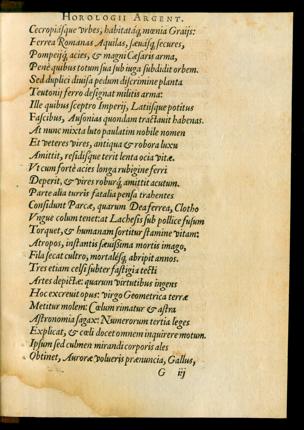 HOROLOGII ARGENT.
Cecropiásque vrbes, habitatáq; mœnia Graijs:
Ferrea Romanas Aquilas, sæuasq; secures,
Pompeijq; acies, & magni Cæsaris arma,
Penè quibus totum sua sub iuga subdidit orbem.
Sed duplici diuisa pedum discrimine planta
Teutonij ferro designat militis arma:
Ille quibus sceptro Imperij, Latiisque potitus
Fascibus, Ausonias quondam tractauit habenas.
At nunc mixta luto paulatim nobile nomen
Et veteres vires, antiqua & robora luxu
Amittit, residisque terit lenta ocia vitæ.
Vt cum fortè acies longa rubigine ferri
Deperit, & vires roburq; amittit acutum.
Parte alia turris fatalia pensa trahentes
Considunt Parcæ, quarum Dea ferrea, Clotho
Vngue colum tenet: at Lachesis sub pollice fusum
Torquet, & humanam sortitur stamine vitam:
Atropos, instantis sæuissima mortis imago,
Fila secat cultro, mortalesq; abripit annos.
Tres etiam celsi subter fastigia tecti
Artes depictæ: quarum virtutibus ingens
Hoc excreuit opus: virgo Geometrica terræ
Metitur molem: Cælum rimatur & astra
Astronomia sagax: Numerorum tertia leges
Explicat, & cæli docet omnem inquirere motum.
Ipsum sed culmen mirandi corporis ales
Obtinet, Auroræ volucris prænuncia, Gallus,
G iij